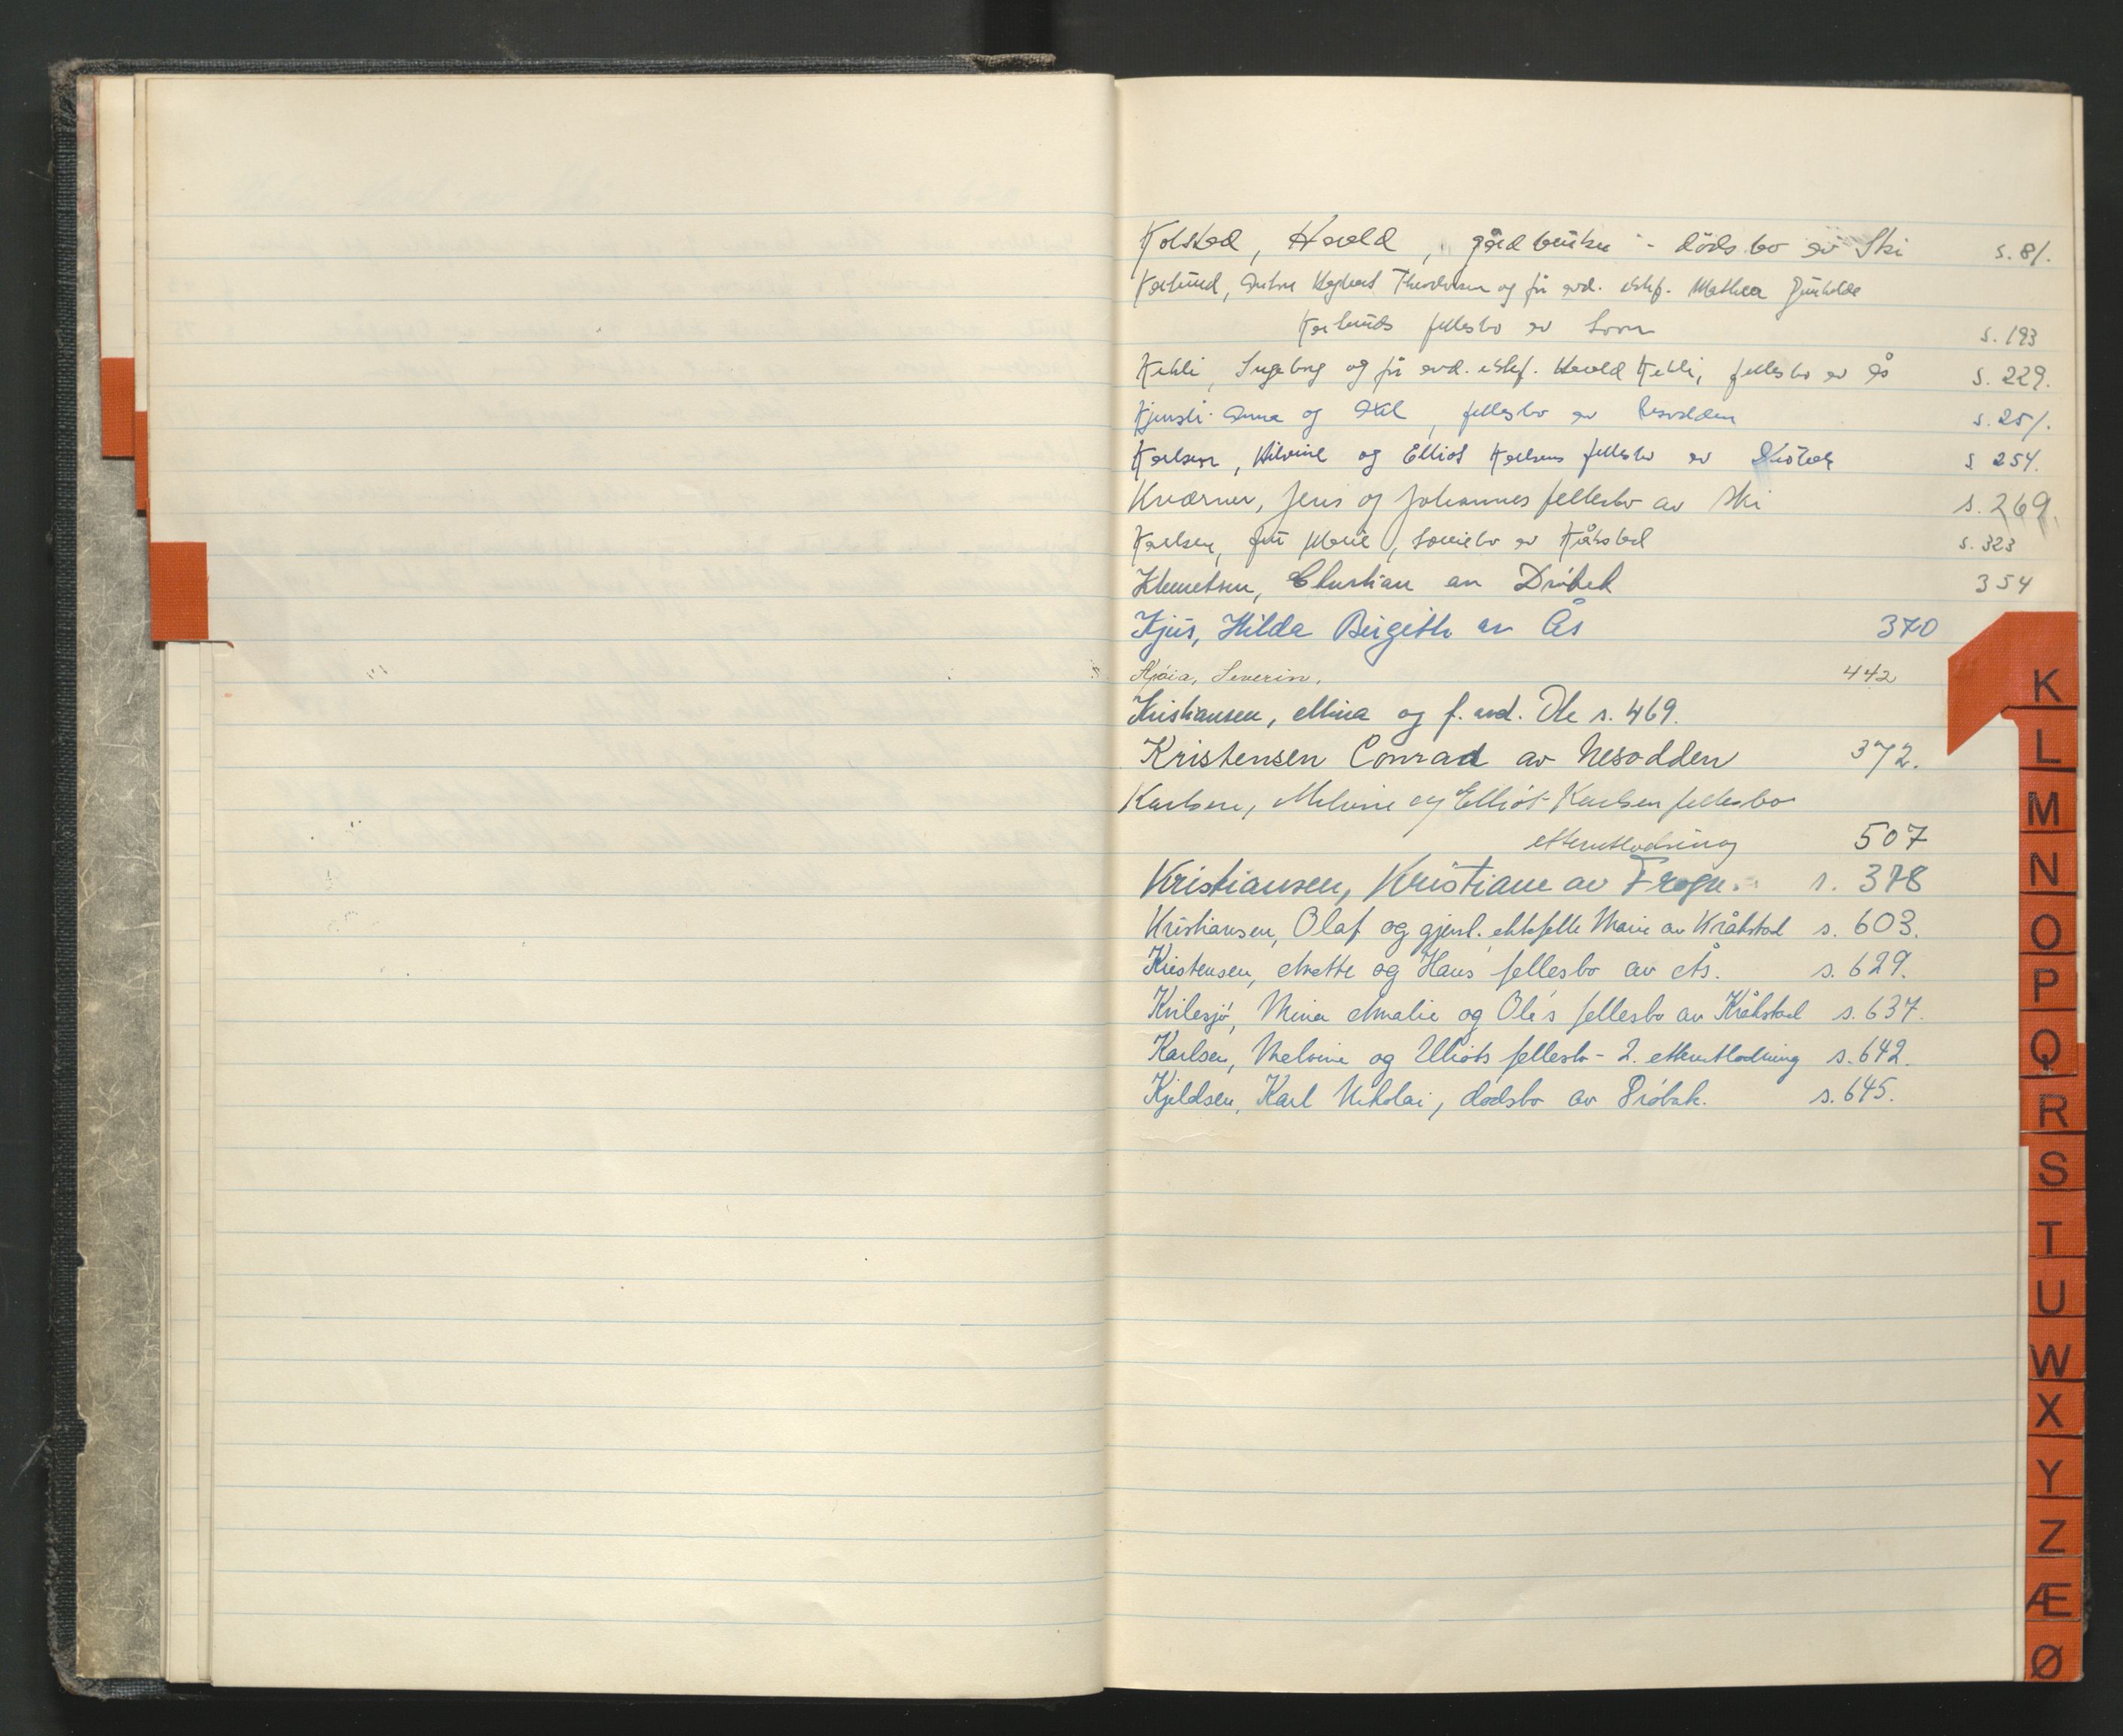 Kolstad, Harald, gårdbruker - dödsbo av Ski s. 81.
Karlund, Anton Theodorsen og fru avd. ektef. Mathea
Karlunds fellesbo av s. 193
Kihli, Ingeborg og fru avd. ektef. Harald Kihli, fellesbo av Ås s. 229.
Kjensli Anna og Axel, fellesbo av Nesodden s. 251.
Karlsen, Milvine og Elliot Karlsens fellesbo av Dröbak s 254.
Kværner, Jens og Johannes fellesbo av Ski s. 269.
Karlsen, fru Marie, særeiebo av Kråkstad s. 323
Klemetsen, Christian av Dröbak 354
Kjus, Hilda Birgithe av Ås 370
Severin. 442
Kristiansen, Mina og f. avd. Ole s. 469.
Kristensen Conrad av Nesodden 372.
Karlsen, Melvine og Elliot Karlsen fellesbo
etterutlodning 507
Kristiansen, Kristiane av Frogn. s. 378
Kristiansen, Olaf og gjenl. ektefelle Marie av Kråkstad s. 603.
Kristensen, Anette og Hans fellesbo av Ås. s. 629.
Kvilesjö, Mina Amalie og Ole's fellesbo av Kråkstad s. 637.
Karlsen, Melvine og Elliots fellesbo - 2. etterutlodning s. 642.
Kjeldsen, Karl Nikolai, dødsbo av Dröbak. s. 645.
K
L
M
N
O
P
Q
R
S
T
U
W
X
Y
Z
Æ
Ø